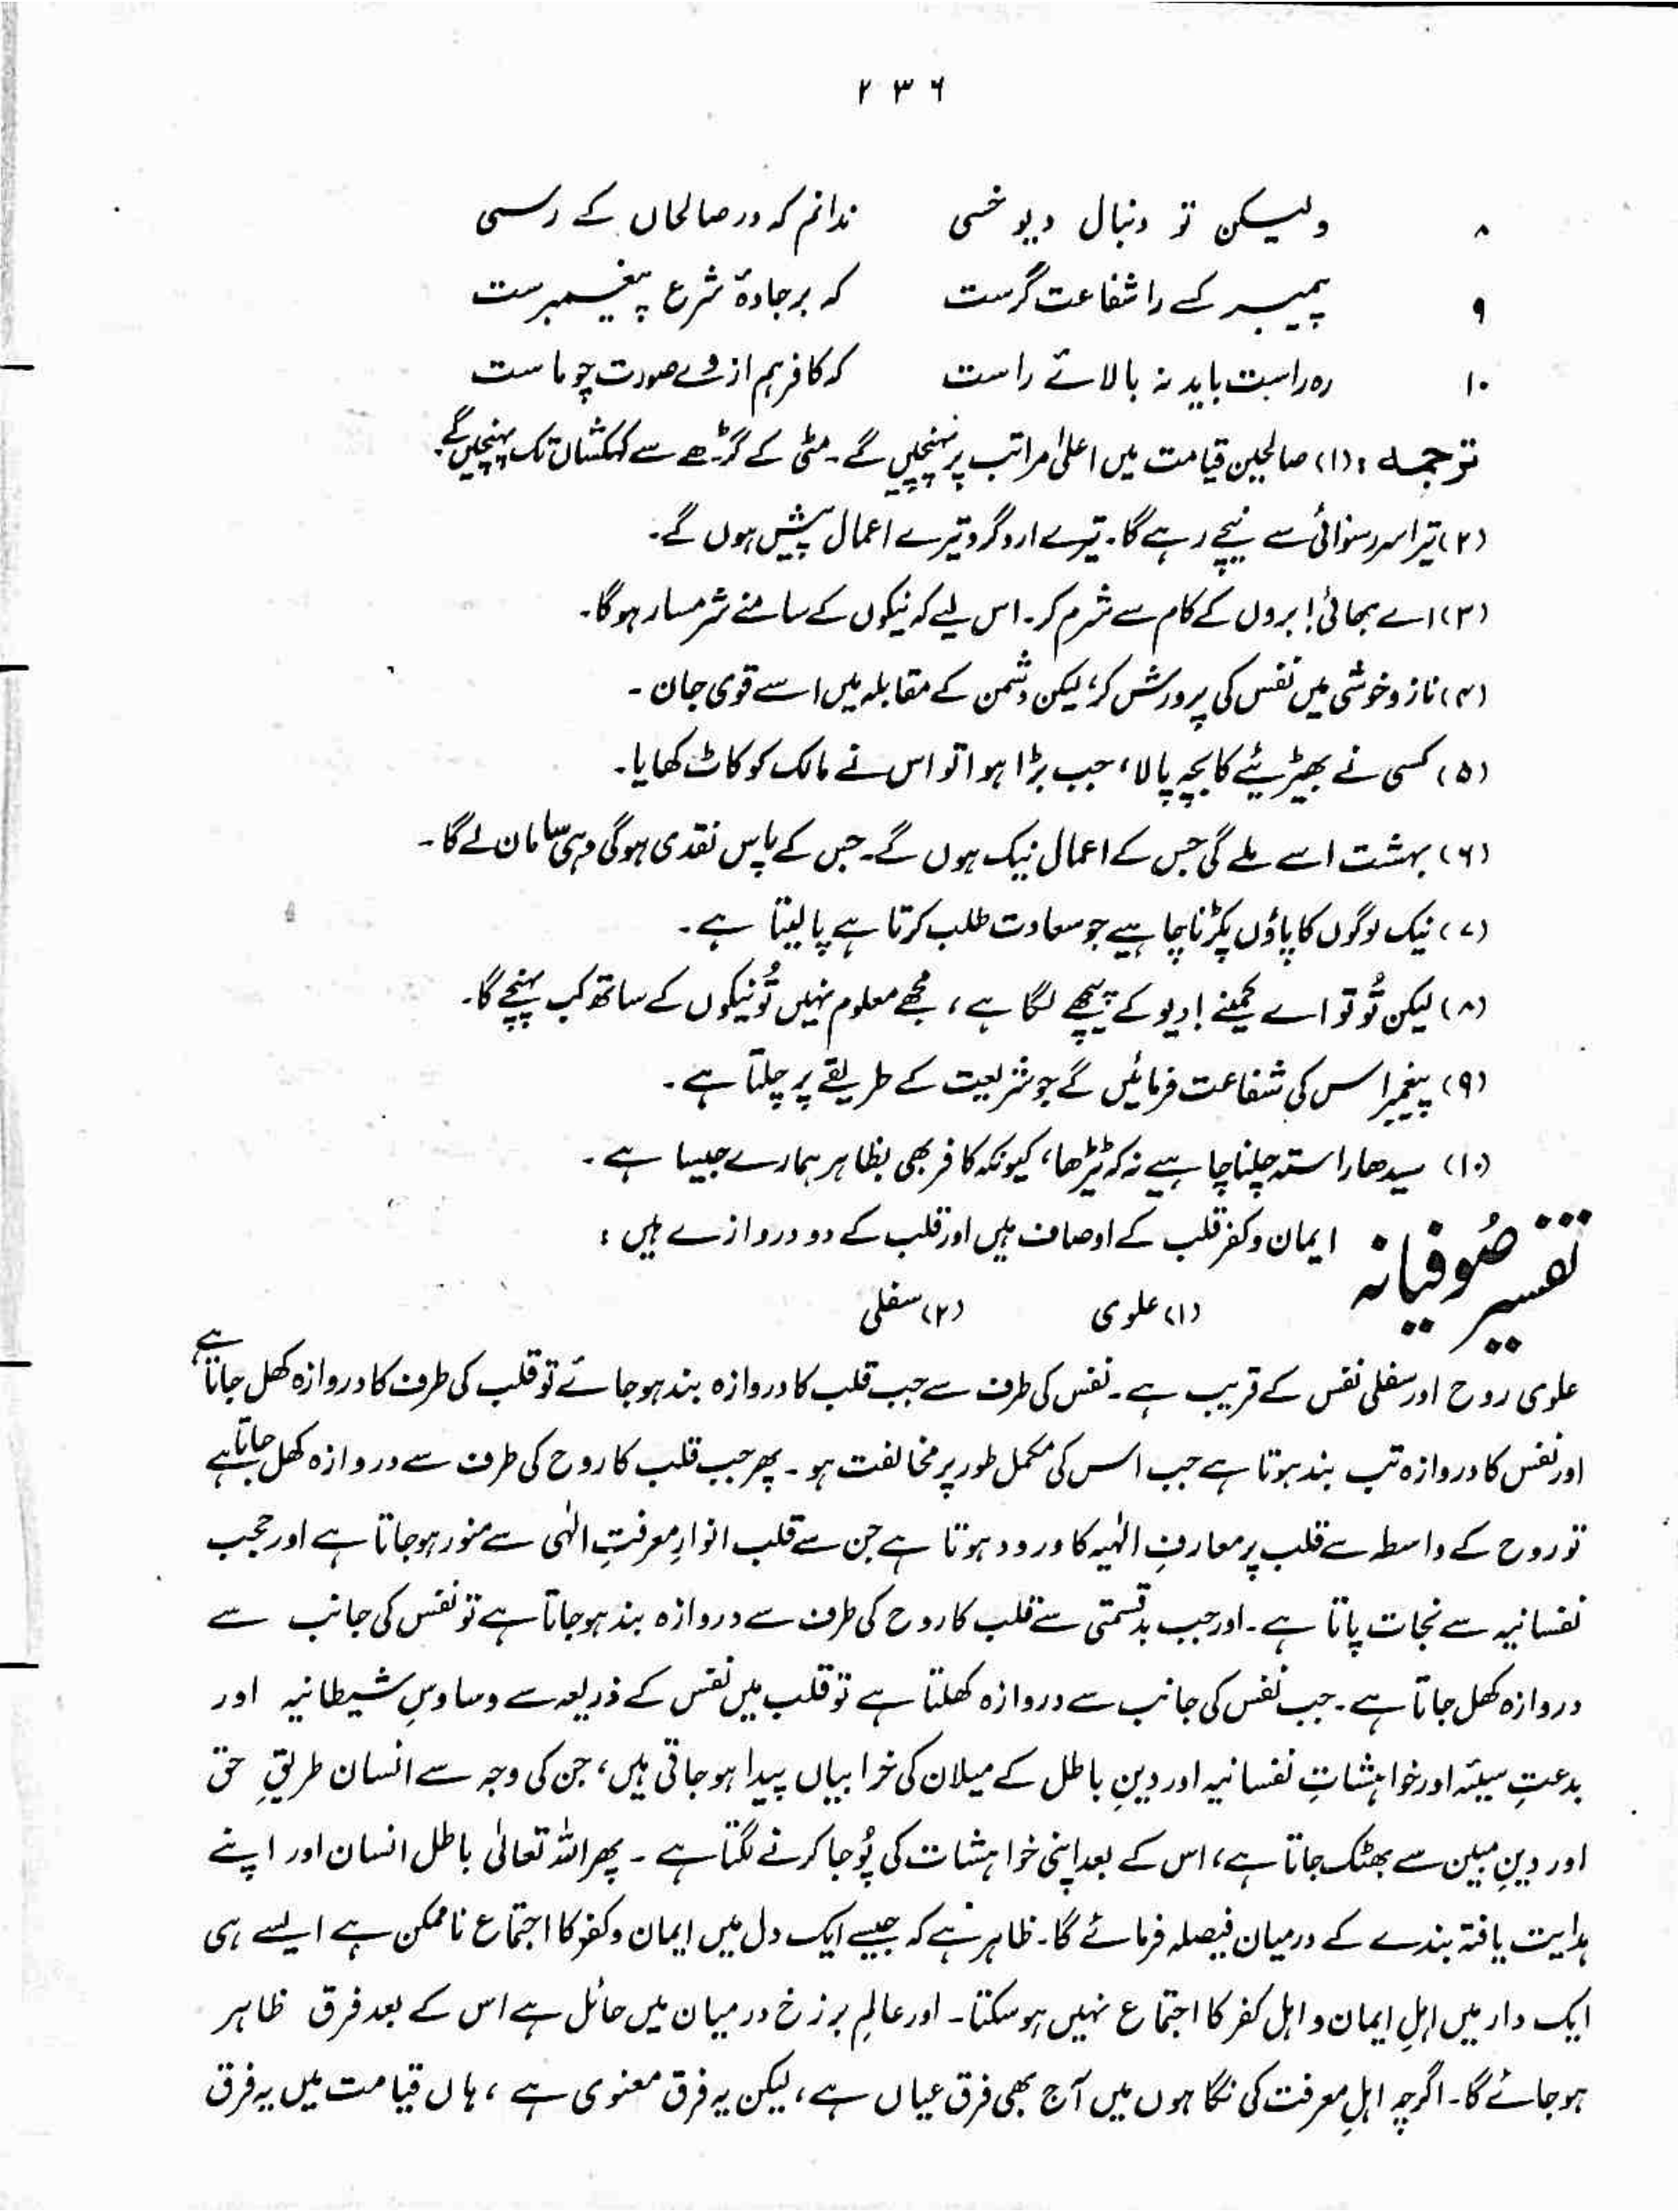 ۲۳۶
۸ ولیکن تو دنبال دیو خسی ندانم کہ در صالحاں کے رسی
۹ پیمبر کسے را شفاعت گرست کہ بر جادۂ شرع پیغمبرست
۱۰ رہ راست باید نہ بالائے راست کہ کافر ہم از روے صورت چو ماست
ترجمہ : (۱) صالحین قیامت میں اعلیٰ مراتب پر پہنچیں گے۔ مٹی کے گڑھے سے کہکشاں تک پہنچیں گے۔
(۲) تیرا سر رسوائی سے نیچے رہے گا۔ تیرے ارد گرد تیرے اعمال پیش ہوں گے۔
(۳) اے بھائی! بروں کے کام سے شرم کر۔ اس لیے کہ نیکوں کے سامنے شرمسار ہوگا۔
(۴) ناز و خوشی میں نفس کی پرورش کر، لیکن دشمن کے مقابلہ میں اسے قوی جان ۔
(۵) کسی نے بھیڑیئے کا بچہ پالا، جب بڑا ہوا تو اس نے مالک کو کاٹ کھایا۔
(۶) بہشت اسے ملے گی جس کے اعمال نیک ہوں گے۔ جس کے پاس نقدی ہوگی وہی سامان لے گا ۔
(۷) نیک لوگوں کا پاؤں پکڑنا چاہیے جو سعادت طلب کرتا ہے پا لیتا ہے ۔
(۸) لیکن تُو تو اے کمینے! دیو کے پیچھے لگا ہے، مجھے معلوم نہیں تُو نیکوں کے ساتھ کب پہنچے گا۔
(۹) پیغمبر اس کی شفاعت فرمائیں گے جو شریعت کے طریقے پر چلتا ہے ۔
(۱۰) سیدھا راستہ چلنا چاہیے نہ کہ ٹیڑھا، کیونکہ کافر بھی بظاہر ہمارے جیسا ہے ۔
تفسیر صُوفیانہ ایمان و کفر قلب کے اوصاف ہیں اور قلب کے دو دروازے ہیں :
(۱) علوی (۲) سفلی
علوی روح اور سفلی نفس کے قریب ہے ۔ نفس کی طرف سے جب قلب کا دروازہ بند ہو جائے تو قلب کی طرف کا دروازہ کھل جاتا ہے،
اور نفس کا دروازہ تب بند ہوتا ہے جب اس کی مکمل طور پر مخالفت ہو ۔ پھر جب قلب کا روح کی طرف سے دروازہ کھل جاتا ہے
تو روح کے واسطہ سے قلب پر معارفِ الٰہیہ کا ورود ہوتا ہے جن سے قلب انوارِ معرفتِ الٰہی سے منور ہو جاتا ہے اور حجب
نفسانیہ سے نجات پاتا ہے ۔ اور جب بدقسمتی سے قلب کا روح کی طرف سے دروازہ بند ہو جاتا ہے تو نفس کی جانب سے
دروازہ کھل جاتا ہے ۔ جب نفس کی جانب سے دروازہ کھلتا ہے تو قلب میں نفس کے ذریعہ سے وساوسِ شیطانیہ اور
بدعتِ سیئہ اور خواہشاتِ نفسانیہ اور دینِ باطل کے میلان کی خرابیاں پیدا ہو جاتی ہیں، جن کی وجہ سے انسان طریقِ حق
اور دینِ مبین سے بھٹک جاتا ہے، اس کے بعد اپنی خواہشات کی پُوجا کرنے لگتا ہے ۔ پھر اللہ تعالیٰ باطل انسان اور اپنے
ہدایت یافتہ بندے کے درمیان فیصلہ فرمائے گا۔ ظاہر ہے کہ جیسے ایک دل میں ایمان و کفر کا اجتماع ناممکن ہے ایسے ہی
ایک دار میں اہلِ ایمان و اہل کفر کا اجتماع نہیں ہو سکتا۔ اور عالمِ برزخ درمیان میں حائل ہے اس کے بعد فرق ظاہر
ہو جائے گا ۔ اگرچہ اہلِ معرفت کی نگاہوں میں آج بھی فرق عیاں ہے، لیکن یہ فرق معنوی ہے، ہاں قیامت میں یہ فرق